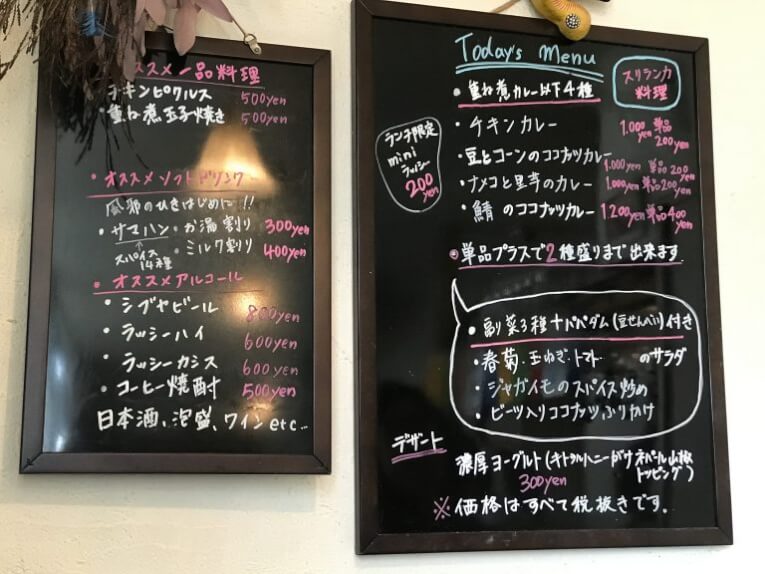 オススメ一品料理
チキンピクルス 500yen
・重ね煮玉子焼き 500yen
・オススメソフトドリンク
風邪のひきはじめに!!
・サマハン・お湯割り 300yen
スパイス14種 ・ミルク割り 400yen
・オススメアルコール
・シブヤビール 800yen
・ラッシーハイ 600yen
・ラッシーカシス 600yen
・コーヒー焼酎 500yen
日本酒、泡盛、ワインetc…
Today's Menu
スリランカ料理
・重ね煮カレー以下4種
ランチ限定
mini
ラッシー
200yen
・チキンカレー 1.000yen 単品200yen
・豆とコーンのココナッツカレー 1.000yen 単品200yen
・ナメコと里芋のカレー 1.000yen 単品200yen
・鯖のココナッツカレー 1200yen 単品400yen
・単品プラスで2種盛りまで出来ます
・副菜3種+パパダム(豆せんべい)付き
・春菊・玉ねぎ・トマトのサラダ
・ジャガイモのスパイス炒め
・ビーツ入りココナッツふりかけ
デザート
濃厚ヨーグルト(キトゥルハニーがけ ネパール山椒トッピング)
300yen
※価格はすべて税抜きです。